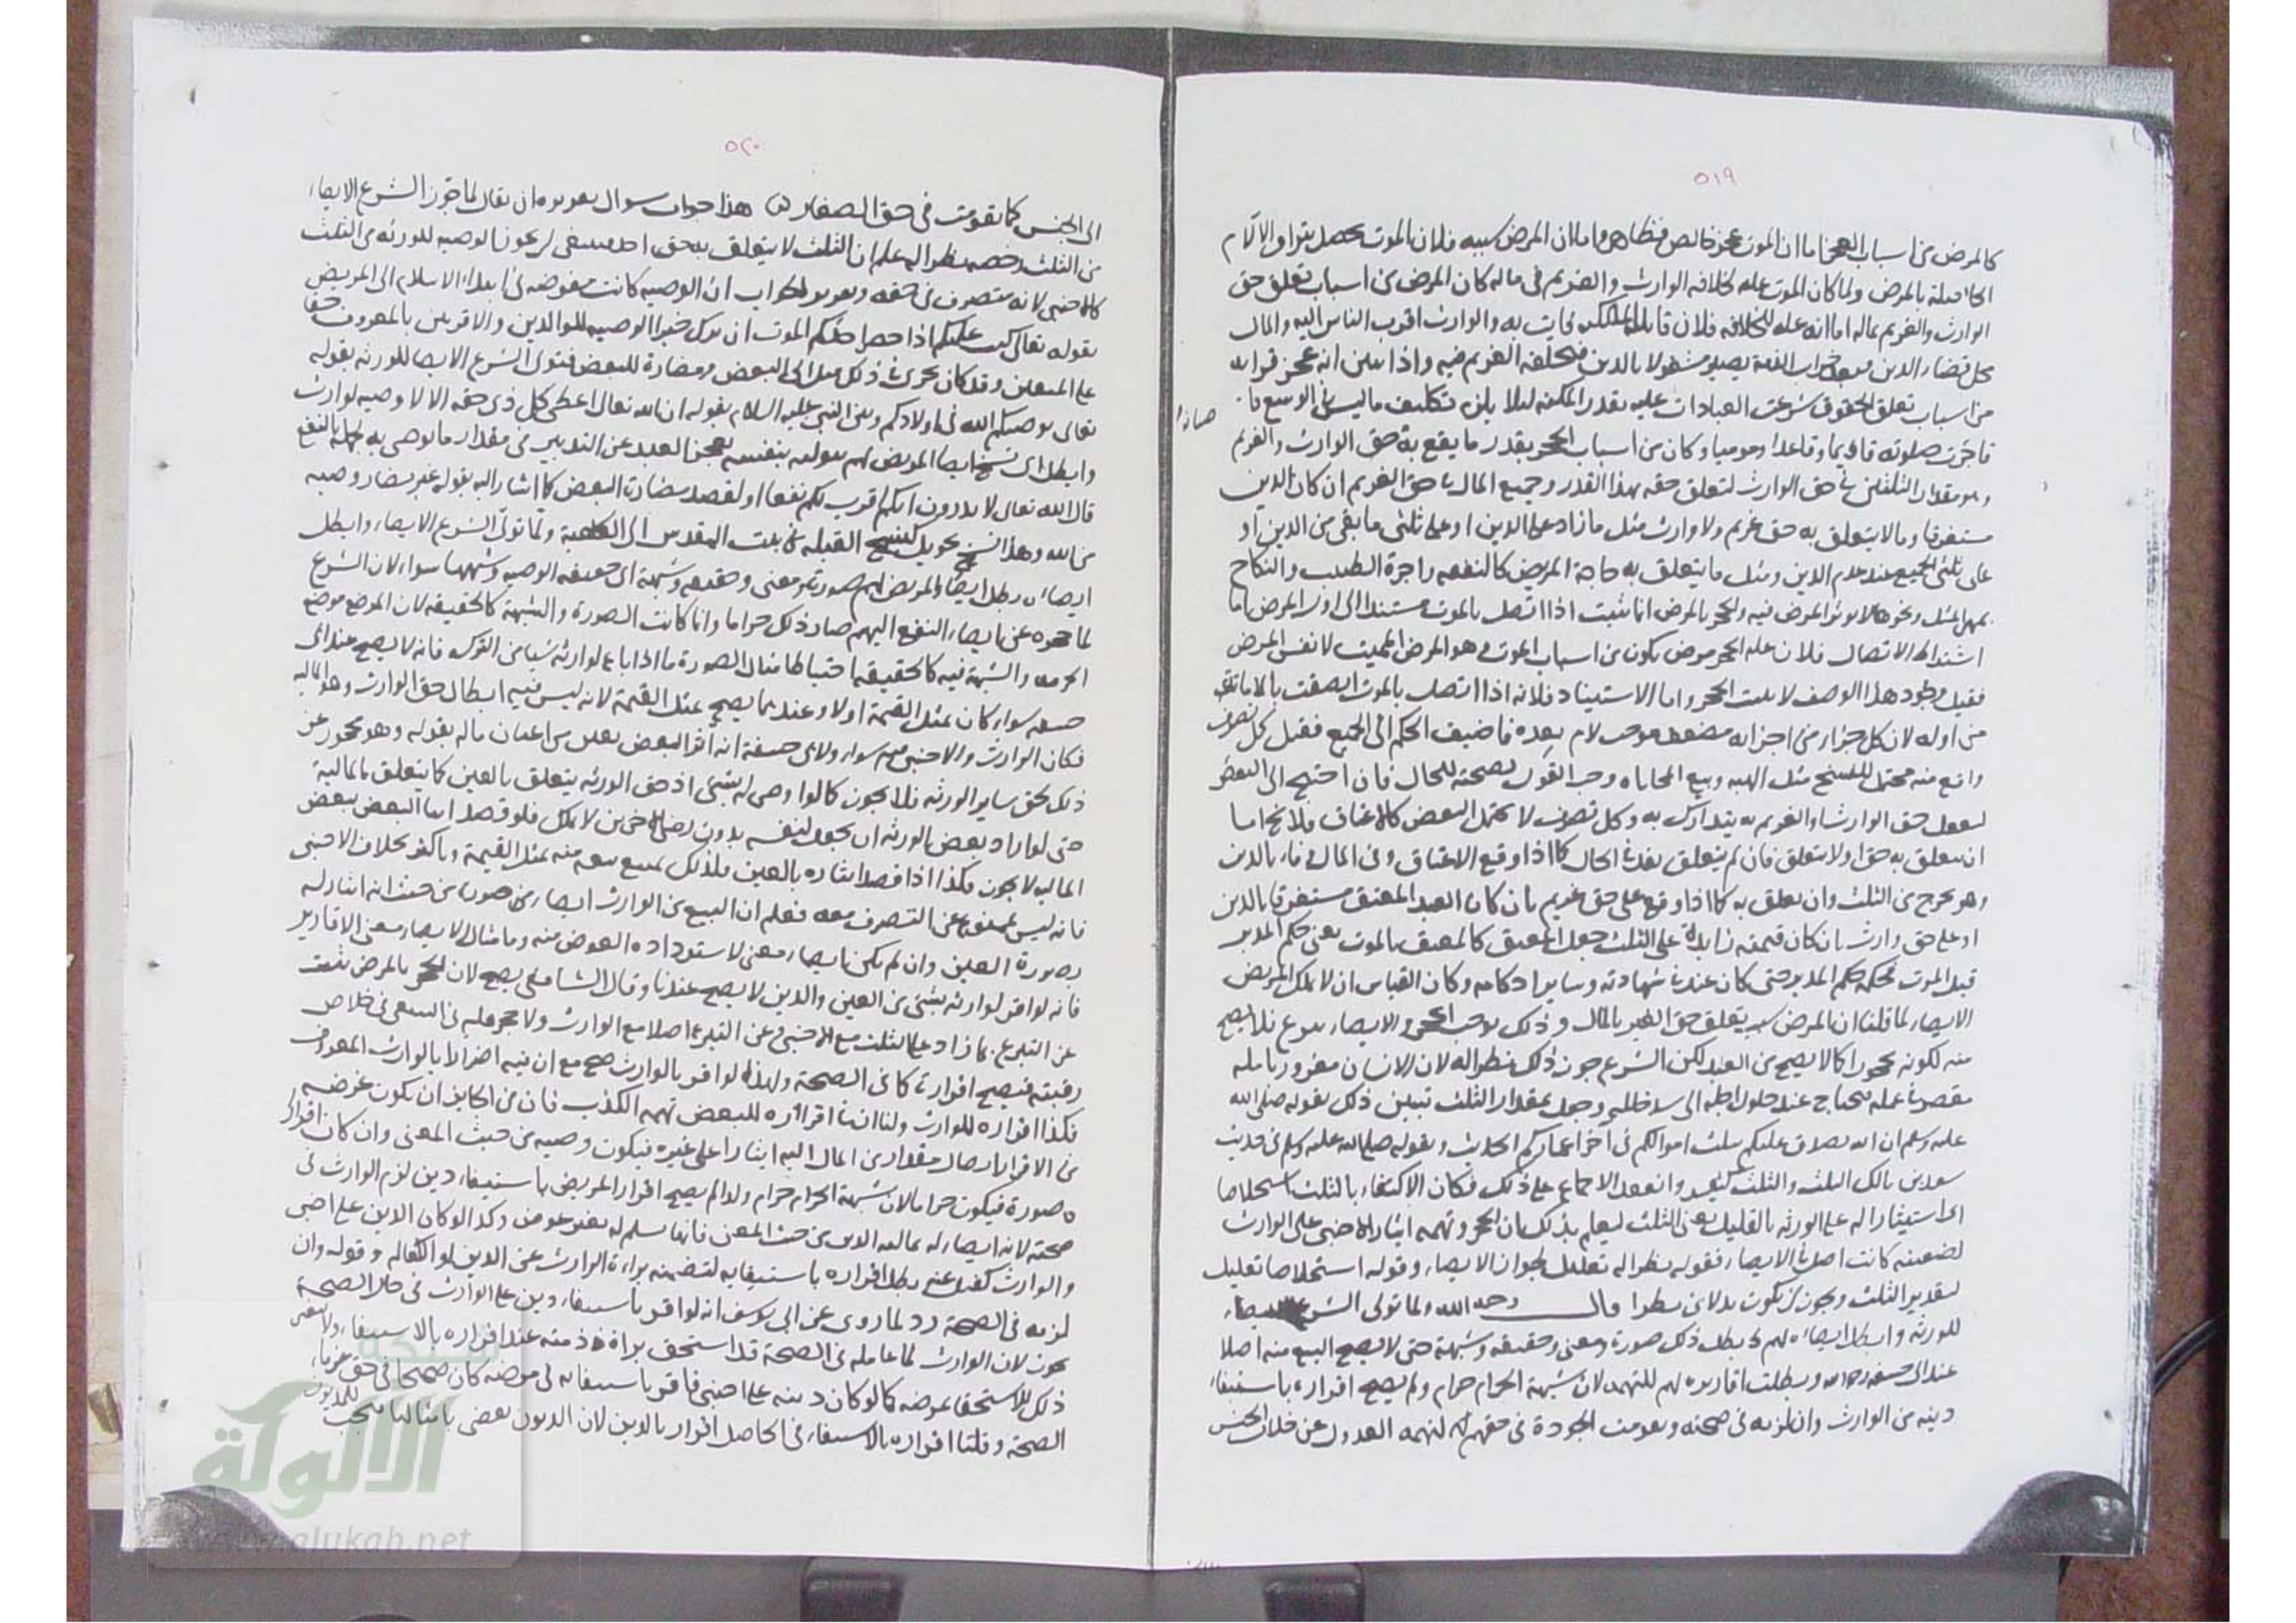 ٥١٩
كالمرض من اسباب العجز اما ان الموت عجز خالص فظاهر واما ان المرض سببه فلان الموت يحصل بترادف الآلام
الحاصلة بالمرض ولما كان الموت علة خلافة الوارث والغريم في ماله كان المرض من اسباب تعلق حق
الوارث والغريم بماله اما انه علة الخلافة فلان قابلية الملك فاتت به والوارث اقرب الناس اليه والمال
محل قضاء الدين فبعد خراب الذمة يصير مشغولا بالدين فيخلفه الغريم فيه واذا تبين انه عجز فوانه
من اسباب تعلق الحقوق شرعت العبادات عليه بقدر المكنة ليلا يلزم تكليف ما ليس في الوسع
فاخرت صلوته قايما وقاعدا ومومياً وكان من اسباب الحجر بقدر ما يقع به حق الوارث والغريم
وهو مقدار الثلثين في حق الوارث لتعلق حقه بهذا القدر وجميع المال في حق الغريم ان كان الدين
مستغرقا وما لا يتعلق به حق غريم ولا وارث مثل ما زاد على الدين او على ثلثي ما بقي من الدين او
على ثلثي الجميع عند عدم الدين ومثل ما يتعلق به حاجة المريض كالنفقة واجرة الطبيب والنكاح
بمهر المثل ونحوها لا يوثر المرض فيه والحجر بالمرض انما يثبت اذا اتصل بالموت مستندا الى اول المرض اما
اشتراط الاتصال فلان علة الحجر مرض يكون من اسباب الموت هو المرض المميت لا نفس المرض
فقبل وجود هذا الوصف لا يثبت الحجر واما الاستناد فلانه اذا اتصل بالموت اتصفت بالاماتة
من اوله لان كل جزء من اجزائه مضعف موجب لالم بعده فاضيف الحكم الى الجميع فقيل كل تصرف
واقع منه محتمل للفسخ مثل الهبة وبيع المحاباة وجب القول بصحته للحال فان احتيج الى النقض
لتعلق حق الوارث او الغريم به يتدارك به وكل تصرف لا يحتمل النقض كالاعتاق فلا يخ اما
ان يتعلق به حق او لا يتعلق فان لم يتعلق نفذ في الحال كما اذا وقع الاعتاق وفي المال وفاء بالدين
وهو يخرج من الثلث وان تعلق به كما اذا وقع على حق غريم بان كان العبد المعتق مستغرقا بالدين
او على حق وارث بان كان قيمته زايدة على الثلث جعل المعتق كالمعلق بالموت يعني حكم المدبر
قبل الموت فحكمه حكم المدبر حتى كان عبدا في شهادته وساير احكامه وكان القياس ان لا يملك المريض
الايصاء لما قلنا ان المرض سبب تعلق حق الغير بالمال وذلك يوجب الحجر والايصاء تبرع فلا يصح
منه لكونه محجورا كالا يصح من العبد لكن الشرع جوز ذلك نظرا له لان الانسان مغرور بامله
مقصر في عمله فيحتاج عند حلول اجله الى وجعل بمقدار الثلث تبين ذلك بقوله صلى الله
عليه وسلم ان الله تصدق عليكم بثلث اموالكم في آخر اعماركم الحديث وبقوله صلى الله عليه وسلم في حديث
سعد بن مالك الثلث والثلث كثير وانعقد الاجماع على ذلك فكان الاكتفاء بالثلث استخلاصا
اي استيثارا له على الورثة بالقليل يعني الثلث ليعلم بذلك ان الحجر وتهمة ايثار الاجنبي على الوارث
لضغينة كانت اصل في الايصاء فقوله نظرا له تعليل لجواز الايصاء وقوله استخلاصا تعليل
لتقدير الثلث ويجوز ان يكون بدلا من نظرا قال رحمه الله ولما تولى الشرع الايصاء
للورثة وابطل ايصاءه لهم بطل ذلك صورة ومعنى وحقيقة وشبهة حتى لا يصح البيع منه اصلا
عند ابي حنيفة رحمه الله وبطلت اقاريره لهم للتهمة لان شبهة الحرام حرام ولم يصح اقراره باستيفاء
دينه من الوارث وان لزمه في صحته وتقومت الجودة في حقهم لتهمة العدول عن خلاف الجنس
٥٢٠
الى الجنس كما تقومت في حق الصغار هذا جواب سوال تقريره ان يقال لما جوز الشرع الايصاء
من الثلث وخصه نظرا له علم ان الثلث لا يتعلق به حق احد فينبغي ان يجوز الوصية للورثة من الثلث
كالاجنبي لانه متصرف في حقه وتقرير الجواب ان الوصية كانت مفوضة في ابتداء الاسلام الى المريض
بقوله تعالى كتب عليكم اذا حضر احدكم الموت ان ترك خيرا الوصية للوالدين والاقربين بالمعروف حقا
على المتقين وقد كان يجري في ذلك ميل الى البعض ومضارة للبعض فتولى الشرع الايصا للورثة بقوله
تعالى يوصيكم الله في اولادكم وبين النبي عليه السلام بقوله ان الله تعالى اعطى كل ذي حق حقه الا لا وصية لوارث
وابطل اي نسخ ايصا المريض لهم بتوليه بنفسه لعجز العبد عن التدبير في مقدار ما يوصي به لجهله بالنفع
قال الله تعالى لا تدرون ايهم اقرب لكم نفعا او لقصد مضارة البعض كما اشار اليه بقوله غير مضار وصية
من الله وهذا النسخ تحويل كنسخ القبلة من بيت المقدس الى الكعبة ولما تولى الشرع الايصاء وابطل
ايصاءه بطل ايصاء المريض لهم صورة ومعنى وحقيقة وشبهة اي حقيقة الوصية وشبهها سواء لان الشرع
لما حجره عن ايصاء النفع اليهم صار ذلك حراما وانما كانت الصورة والشبهة كالحقيقة لان الموضع موضع
الحرمة والشبهة فيه كالحقيقة احتياطا مثال الصورة ما اذا باع لوارثه شيأ من التركة فانه لا يصح عند ابي
حنيفة سواء كان بمثل القيمة او لا وعندهما يصح بمثل القيمة لانه ليس فيه ابطال حق الوارث وهو المالية
فكان الوارث والاجنبي فيه سواء ولابي حنيفة انه آثر البعض بعين من اعيان ماله بقوله وهو محجور عن
ذلك لحق ساير الورثة فلا يجوز كما لو اوصى له بشيء اذ حق الورثة يتعلق بالعين كما يتعلق بالمالية
حتى لو اراد بعض الورثة ان يجعل لنفسه بدون رضى الاخرين لا يملك فلو قصد ايثار البعض ببعض
المالية لا يجوز فكذا اذا قصد ايثاره بالعين فلذلك يمتنع بيعه منه بمثل القيمة وباكثر بخلاف الاجنبي
فانه ليس بممنوع عن التصرف معه فعلم ان البيع من الوارث ايصاء له صورة من حيث انه ايثار له
بصورة العين وان لم يكن ايصاء معنى لاسترداده العوض منه ومثال الايصاء معنى الاقارير
فانه لو اقر لوارثه بشيء من العين والدين لا يصح عندنا وقال الشافعي يصح لان الحجر بالمرض يثبت
عن التبرع بما زاد على الثلث مع الاجنبي وعن التبرع اصلا مع الوارث ولا حجر عليه في السعي في خلاص
رقبته فيصح اقراره كما في الصحة ولهذا لو اقر بالوارث صح مع ان فيه اضرارا بالوارث المعروف
فكذا اقراره للوارث ولنا ان في اقراره للبعض تهمة الكذب فان من الجايز ان يكون غرضه
من الاقرار ايصال مقدار من المال اليه ايثارا على غيره فيكون وصية من حيث المعنى وان كان اقرارا
صورة فيكون حراما لان شبهة الحرام حرام ولذا لم يصح اقرار المريض باستيفاء دين لزم الوارث في
صحته لانه ايصاء له بمالية الدين من حيث المعنى فانها تسلم له بغير عوض وكذا لو كان الدين على اجنبي
والوارث كفيل عنه بطل اقراره باستيفايه لتضمنه براءة الوارث عن الدين لو الكفالة وقوله وان
لزمه في الصحة رد لما روي عن ابي يوسف انه لو اقر باستيفاء دين على الوارث في حال الصحة
يجوز لان الوارث لما عامله في الصحة قد استحق براءة ذمته عند اقراره بالاستيفاء ولا يتغير
ذلك الاستحقاق بمرضه كما لو كان دينه على اجنبي فاقر باستيفائه في مرضه كان صحيحا في حق غرماء
الصحة وقلنا اقراره بالاستيفاء في الحاصل اقرار بالدين لان الديون تقضى بامثالها فيجب للمديون
الألوكة
alukah.net